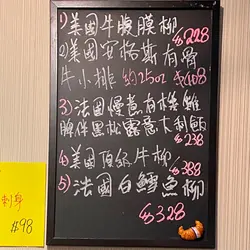 1) 美國牛膜膜柳
$228
2) 美國安格斯有骨
牛小排 約25oz $408
3) 法國慢煮有機雞
胸伴黑松露意大利飯
$238
4) 美國頂級牛柳
$388
5) 法國白鱈魚柳
$328
刺身
$98